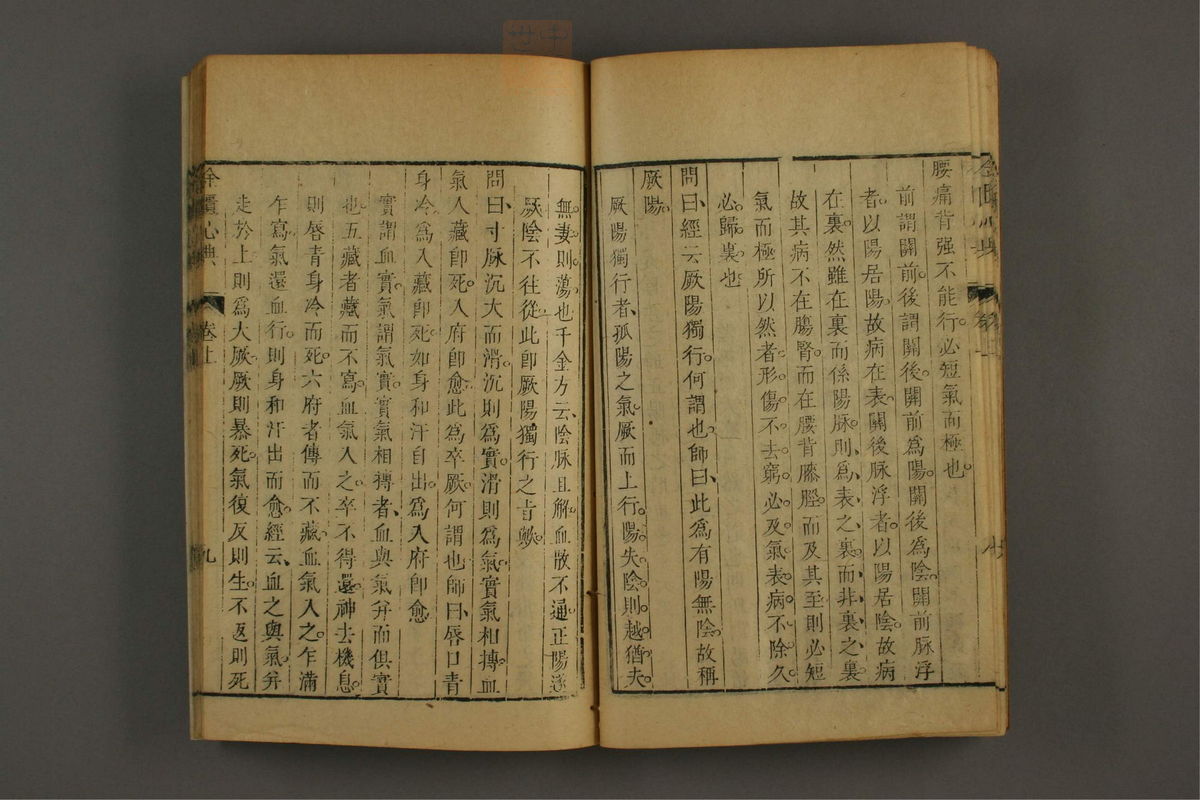 腰痛背强不能行。必短氣而極也。
前謂關前。後謂關後。關前爲陽。關後爲陰。關前脉浮
者。以陽居陽。故病在表。關後脉浮者。以陽居陰。故病
在裏。然雖在裏而係陽脉。則爲表之裏。而非裏之裏。
故其病不在膓腎。而在腰背膝脛。而及其至。則必短
氣而極。所以然者。形傷不去。窮必及氣。表病不除。久
必歸裏也
問曰、經云厥陽獨行。何謂也。師曰、此爲有陽無陰。故稱
厥陽。
厥陽獨行者、孤陽之氣厥而上行。陽失陰則越。猶夫
無妻則蕩也。千金方云、陰脉且解。血散不通。正陽遂
厥。陰不往從。此卽厥陽獨行之旨歟。
問曰、寸脉沉大而滑。沉則爲實。滑則爲氣。實氣相摶。血
氣入藏卽死。入府卽愈。此爲卒厥。何謂也。師曰、唇口青
身冷。爲入藏卽死。如身和汗自出。爲入府卽愈
實謂血實。氣謂氣實。實氣相摶者、血與氣并而俱實
也。五藏者藏而不寫。血氣入之。卒不得還。神去機息。
則唇青身冷而死。六府者傳而不藏。血氣入之。乍滿
乍寫。氣還血行。則身和汗出而愈。經云、血之與氣。并
走於上。則爲大厥。厥則暴死。氣復反則生。不返則死
金匱心典
卷上
九